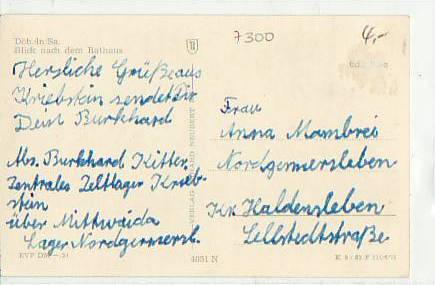 7300
4,-
Döbeln/Sa.
Blick nach dem Rathaus
Herzliche Grüße aus
Kriebstein sendet Dir
Dein Burkhard
Abs. Burkhard Kitter
Zentrales Zeltlager Krieb-
stein
über Mittweida
Lager Nordgermersl.
EVP DM
4031 N
Frau
Anna Mambrei
Nordgermersleben
Kr. Haldensleben
Lellstedtstraße